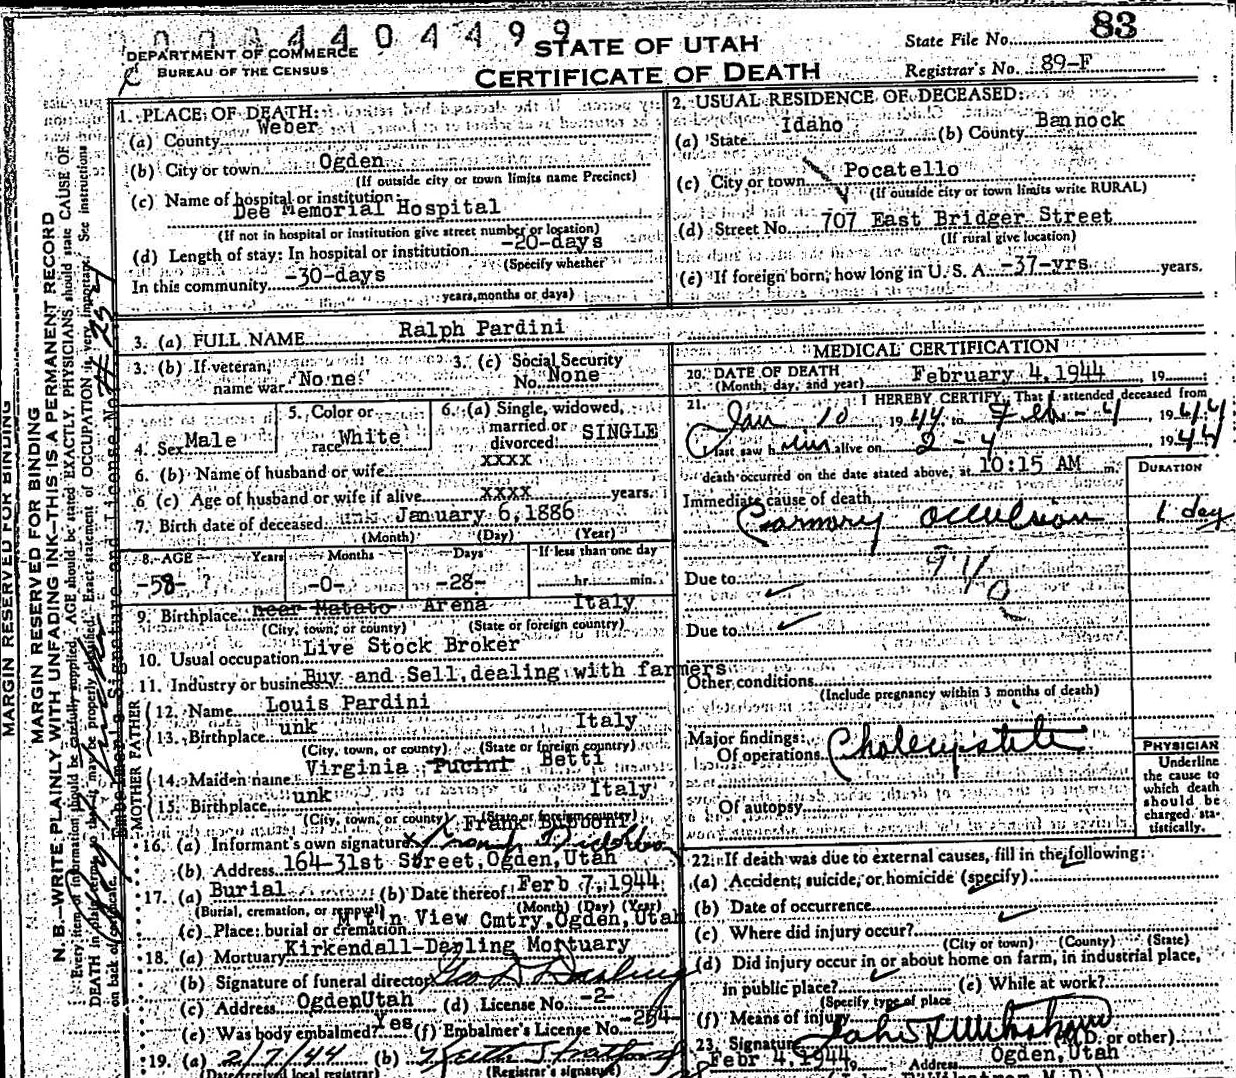 0004404499
DEPARTMENT OF COMMERCE
BUREAU OF THE CENSUS
STATE OF UTAH
CERTIFICATE OF DEATH
State File No. 83
Registrar's No. 89-F
MARGIN RESERVED FOR BINDING
MARGIN RESERVED FOR BINDING
N. B.—WRITE PLAINLY WITH UNFADING INK—THIS IS A PERMANENT RECORD
Every item of information should be carefully supplied. AGE should be stated EXACTLY. PHYSICIANS should state CAUSE OF
DEATH in plain terms, so that it may be properly classified. Exact statement of OCCUPATION is very important. See instructions
on back of certificate.
Embalmer's Signature and License No.
1. PLACE OF DEATH:
(a) County Weber
(b) City or town Ogden
(If outside city or town limits name Precinct)
(c) Name of hospital or institution:
Dee Memorial Hospital
(If not in hospital or institution give street number or location)
(d) Length of stay: In hospital or institution -20-days
(Specify whether
In this community -30-days
years, months or days)
2. USUAL RESIDENCE OF DECEASED:
(a) State Idaho (b) County Bannock
(c) City or town Pocatello
(If outside city or town limits write RURAL)
(d) Street No. 707 East Bridger Street
(If rural give location)
(e) If foreign born, how long in U. S. A. -37-yrs years.
3. (a) FULL NAME Ralph Pardini
3. (b) If veteran, name war None
3. (c) Social Security No. None
4. Sex Male
5. Color or race White
6. (a) Single, widowed, married or divorced: SINGLE
6. (b) Name of husband or wife xxxx
6 (c) Age of husband or wife if alive xxxx years.
7. Birth date of deceased unk January 6,1886
(Month) (Day) (Year)
8. AGE Years Months Days If less than one day
-58- ? -0- -28- hr. min.
9. Birthplace near Matato Arena Italy
(City, town, or county) (State or foreign country)
10. Usual occupation Live Stock Broker
11. Industry or business Buy and Sell,dealing with farmers
FATHER
12. Name Louis Pardini
13. Birthplace unk Italy
(City, town, or county) (State or foreign country)
MOTHER
14. Maiden name Virginia Pucini Betti
15. Birthplace unk Italy
(City, town, or county) (State or foreign country)
16. (a) Informant's own signature x Frank
(b) Address 164-31st Street,Ogden,Utah
17. (a) Burial (b) Date thereof Ferb 7,1944
(Burial, cremation, or removal) (Month) (Day) (Year)
(c) Place: burial or cremation Mt'n View Cmtry,Ogden,Utah
18. (a) Mortuary Kirkendall-Darling Mortuary
(b) Signature of funeral director Geo D Darling
(c) Address OgdenUtah (d) License No. -2-
(e) Was body embalmed? Yes (f) Embalmer's License No. -254-
19. (a) 2/7/44 (b)
(Date received local registrar) (Registrar's signature)
MEDICAL CERTIFICATION
20. DATE OF DEATH
(Month, day, and year) February 4,1944, 19
21. I HEREBY CERTIFY, That I attended deceased from
Jan 10, 1944, to Feb - 4, 1944
I last saw him alive on 2 - 4, 1944
death occurred on the date stated above, at 10:15 AM m.
DURATION
Immediate cause of death
Coronary occulsion 1 day
Due to
Due to
Other conditions
(Include pregnancy within 3 months of death)
Major findings:
Of operations Cholecystitis
Of autopsy
PHYSICIAN
Underline
the cause to
which death
should be
charged sta-
tistically.
22. If death was due to external causes, fill in the following:
(a) Accident, suicide, or homicide (specify)
(b) Date of occurrence
(c) Where did injury occur?
(City or town) (County) (State)
(d) Did injury occur in or about home on farm, in industrial place,
in public place? (e) While at work?
(Specify type of place
(f) Means of injury
23. Signature (M.D. or other)
Febr 4,1944 19 Address Ogden,Utah